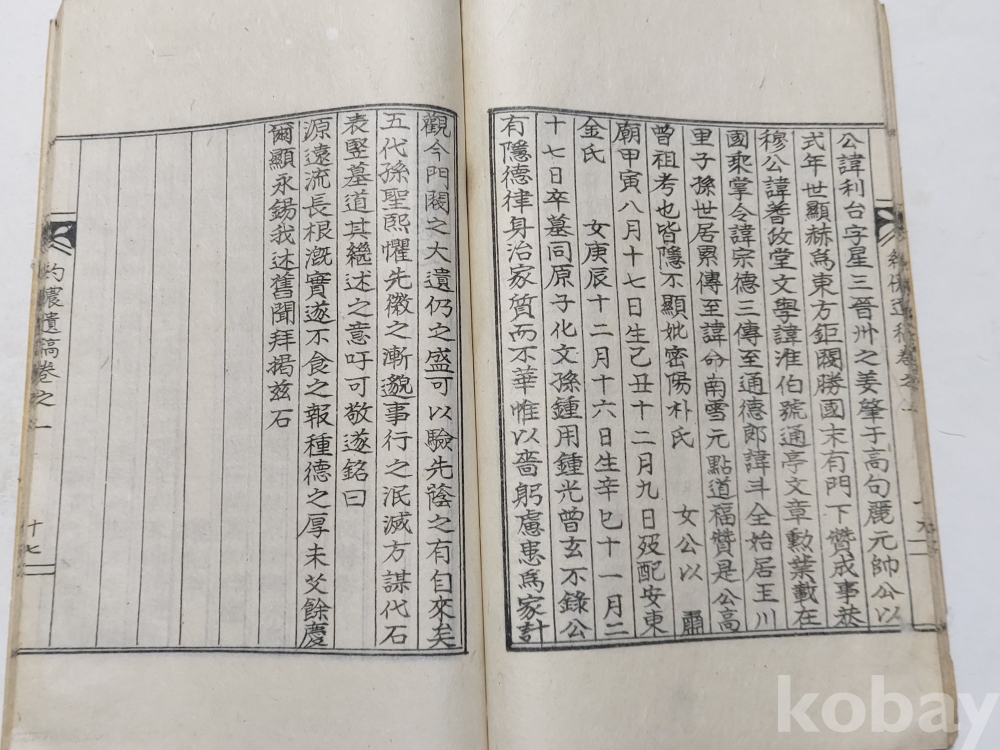 公諱利台字星三晉州之姜肇于高句麗元帥公以
式年世顯赫爲東方鉅閥勝國末有門下贊成事恭
穆公諱蓍政堂文學諱淮伯號通亭文章勳業載在
國乘掌令諱宗德三傳至通德郎諱斗全始居玉川
里子孫世居累傳至諱 南雪元點道福贊是公高
曾祖考也皆隱不顯妣密陽朴氏 女公以 肅
廟甲寅八月十七日生己丑十二月九日歿配安東
金氏 女庚辰十二月十六日生辛巳十一月二
十七日卒墓同原子化文孫鍾用鍾光曾玄不錄公
有隱德律身治家質而不華惟以嗇躬慮患爲家計
觀今門閥之大遺仍之盛可以驗先蔭之有自來矣
五代孫聖熙懼先徽之漸邈事行之泯滅方謀伐石
表竪墓道其繼述之意吁可敬遂銘曰
源遠流長根漑實遂不食之報種德之厚未艾餘慶
爾顯永錫我述舊聞拜揭玆石
遺稿卷之一
十七
kobay